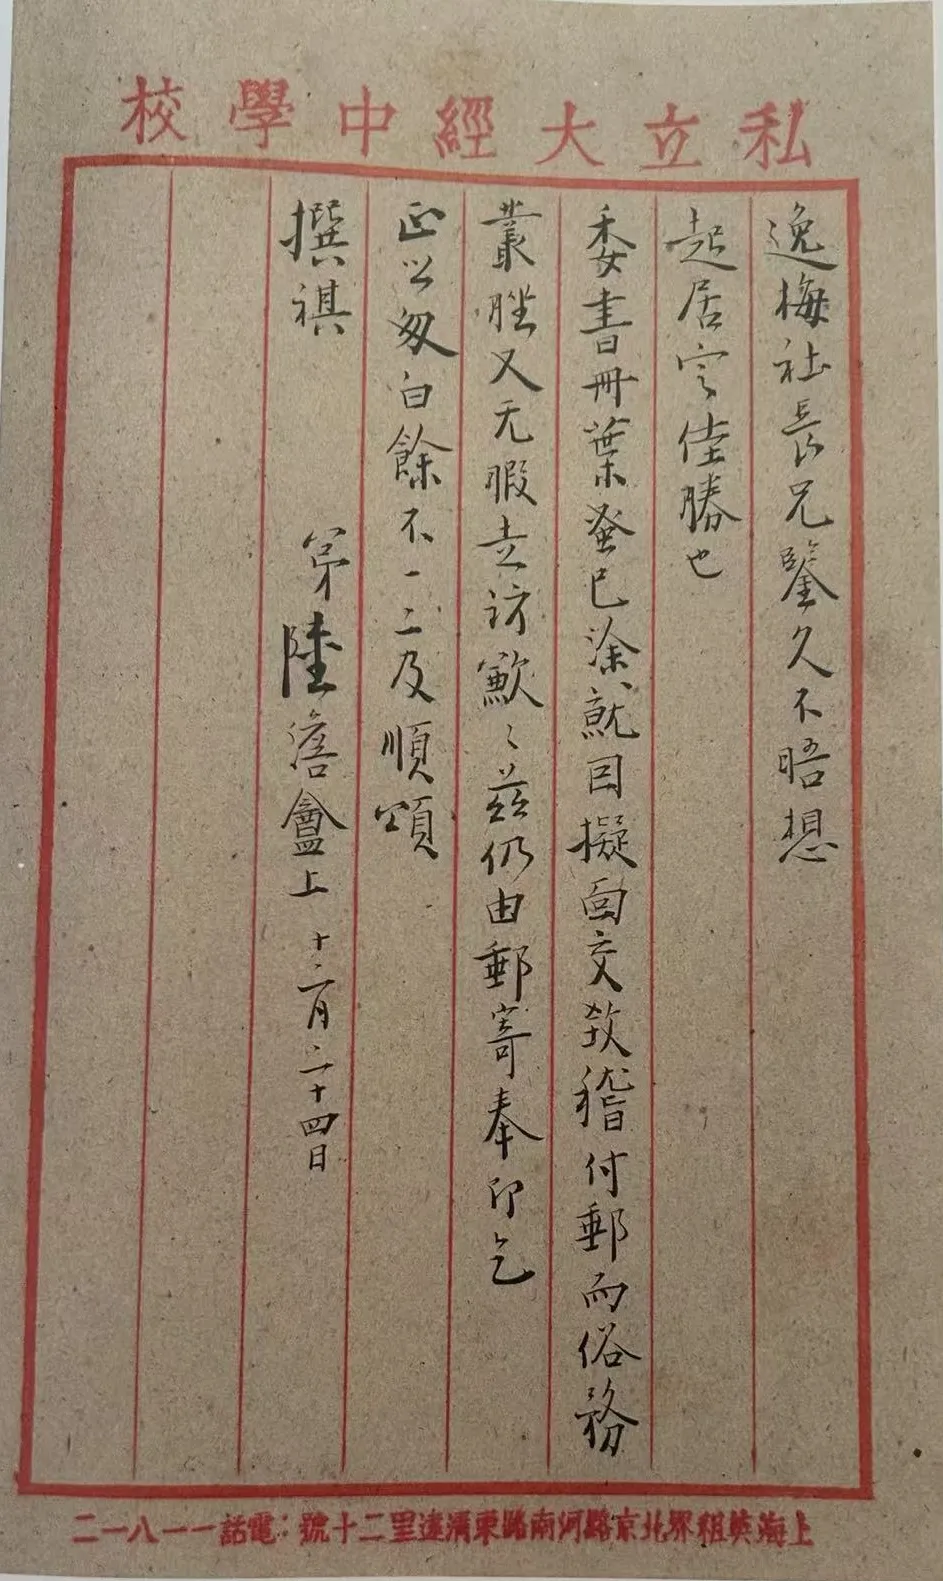 私立大經中學校
逸梅社長兄鑒久不晤想
起居定佳勝也
委書冊葉蚤已涂就因擬面交致稽付郵而俗務
叢脞又无暇走訪歉〻茲仍由郵寄奉卬乞
正以匆白餘不一二及順頌
撰祺　弟陸澹盦上　十二月二十四日
上海英租界北京路河南路東清遠里二十號：電話一一八一二